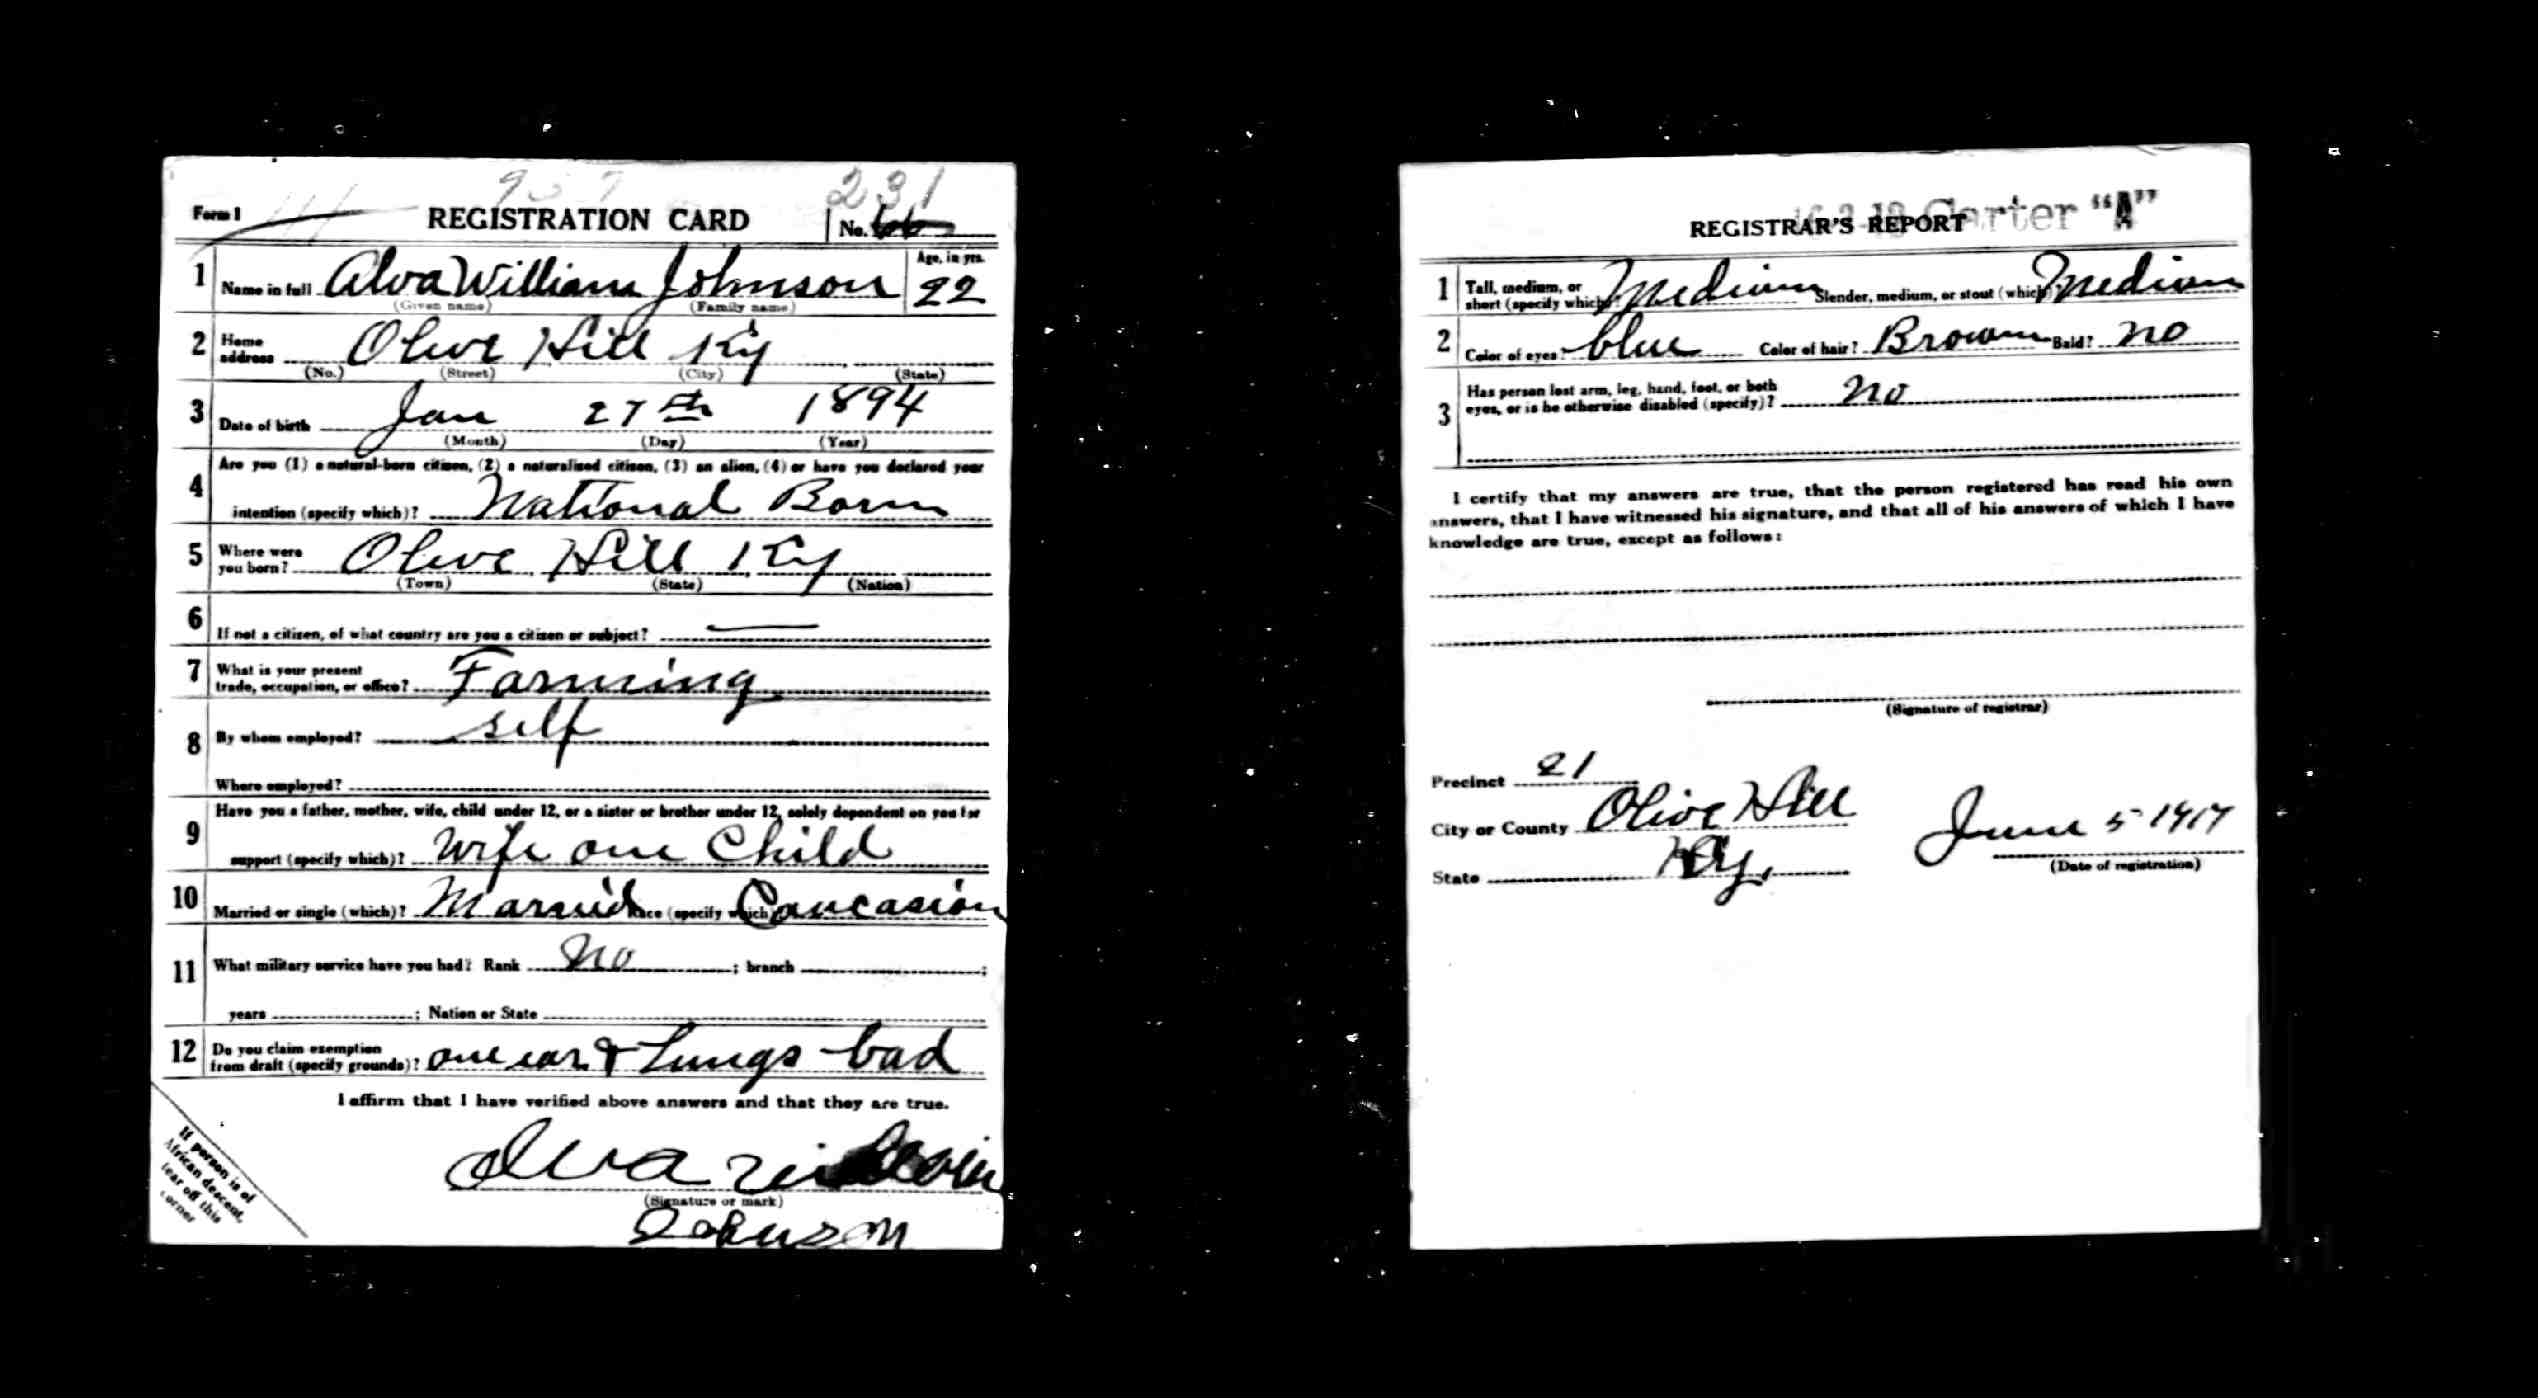 957 231
Form 1 REGISTRATION CARD No.
1 Name in full Alva William Johnson Age, in yrs. 22
(Given name) (Family name)
2 Home address Olive Hill Ky
(No.) (Street) (City) (State)
3 Date of birth Jan 27th 1894
(Month) (Day) (Year)
4 Are you (1) a natural-born citizen, (2) a naturalized citizen, (3) an alien, (4) or have you declared your
intention (specify which)? National Born
5 Where were you born? Olive Hill Ky
(Town) (State) (Nation)
6 If not a citizen, of what country are you a citizen or subject? —
7 What is your present trade, occupation, or office? Farming
8 By whom employed? self
Where employed?
9 Have you a father, mother, wife, child under 12, or a sister or brother under 12, solely dependent on you for
support (specify which)? Wife one Child
10 Married or single (which)? Married Race (specify which) Caucasion
11 What military service have you had? Rank no ; branch ;
years ; Nation or State
12 Do you claim exemption from draft (specify grounds)? one ear & Lungs bad
I affirm that I have verified above answers and that they are true.
Alva
(Signature or mark)
Johnson
If person is of
African descent,
tear off this
corner
Carter "A"
REGISTRAR'S REPORT
1 Tall, medium, or short (specify which)? Medium Slender, medium, or stout (which)? Medium
2 Color of eyes? blue Color of hair? Brown Bald? no
3 Has person lost arm, leg, hand, foot, or both
eyes, or is he otherwise disabled (specify)? no
I certify that my answers are true, that the person registered has read his own
answers, that I have witnessed his signature, and that all of his answers of which I have
knowledge are true, except as follows:
(Signature of registrar)
Precinct 21
City or County Olive Hill
State Ky.
June 5 1917
(Date of registration)